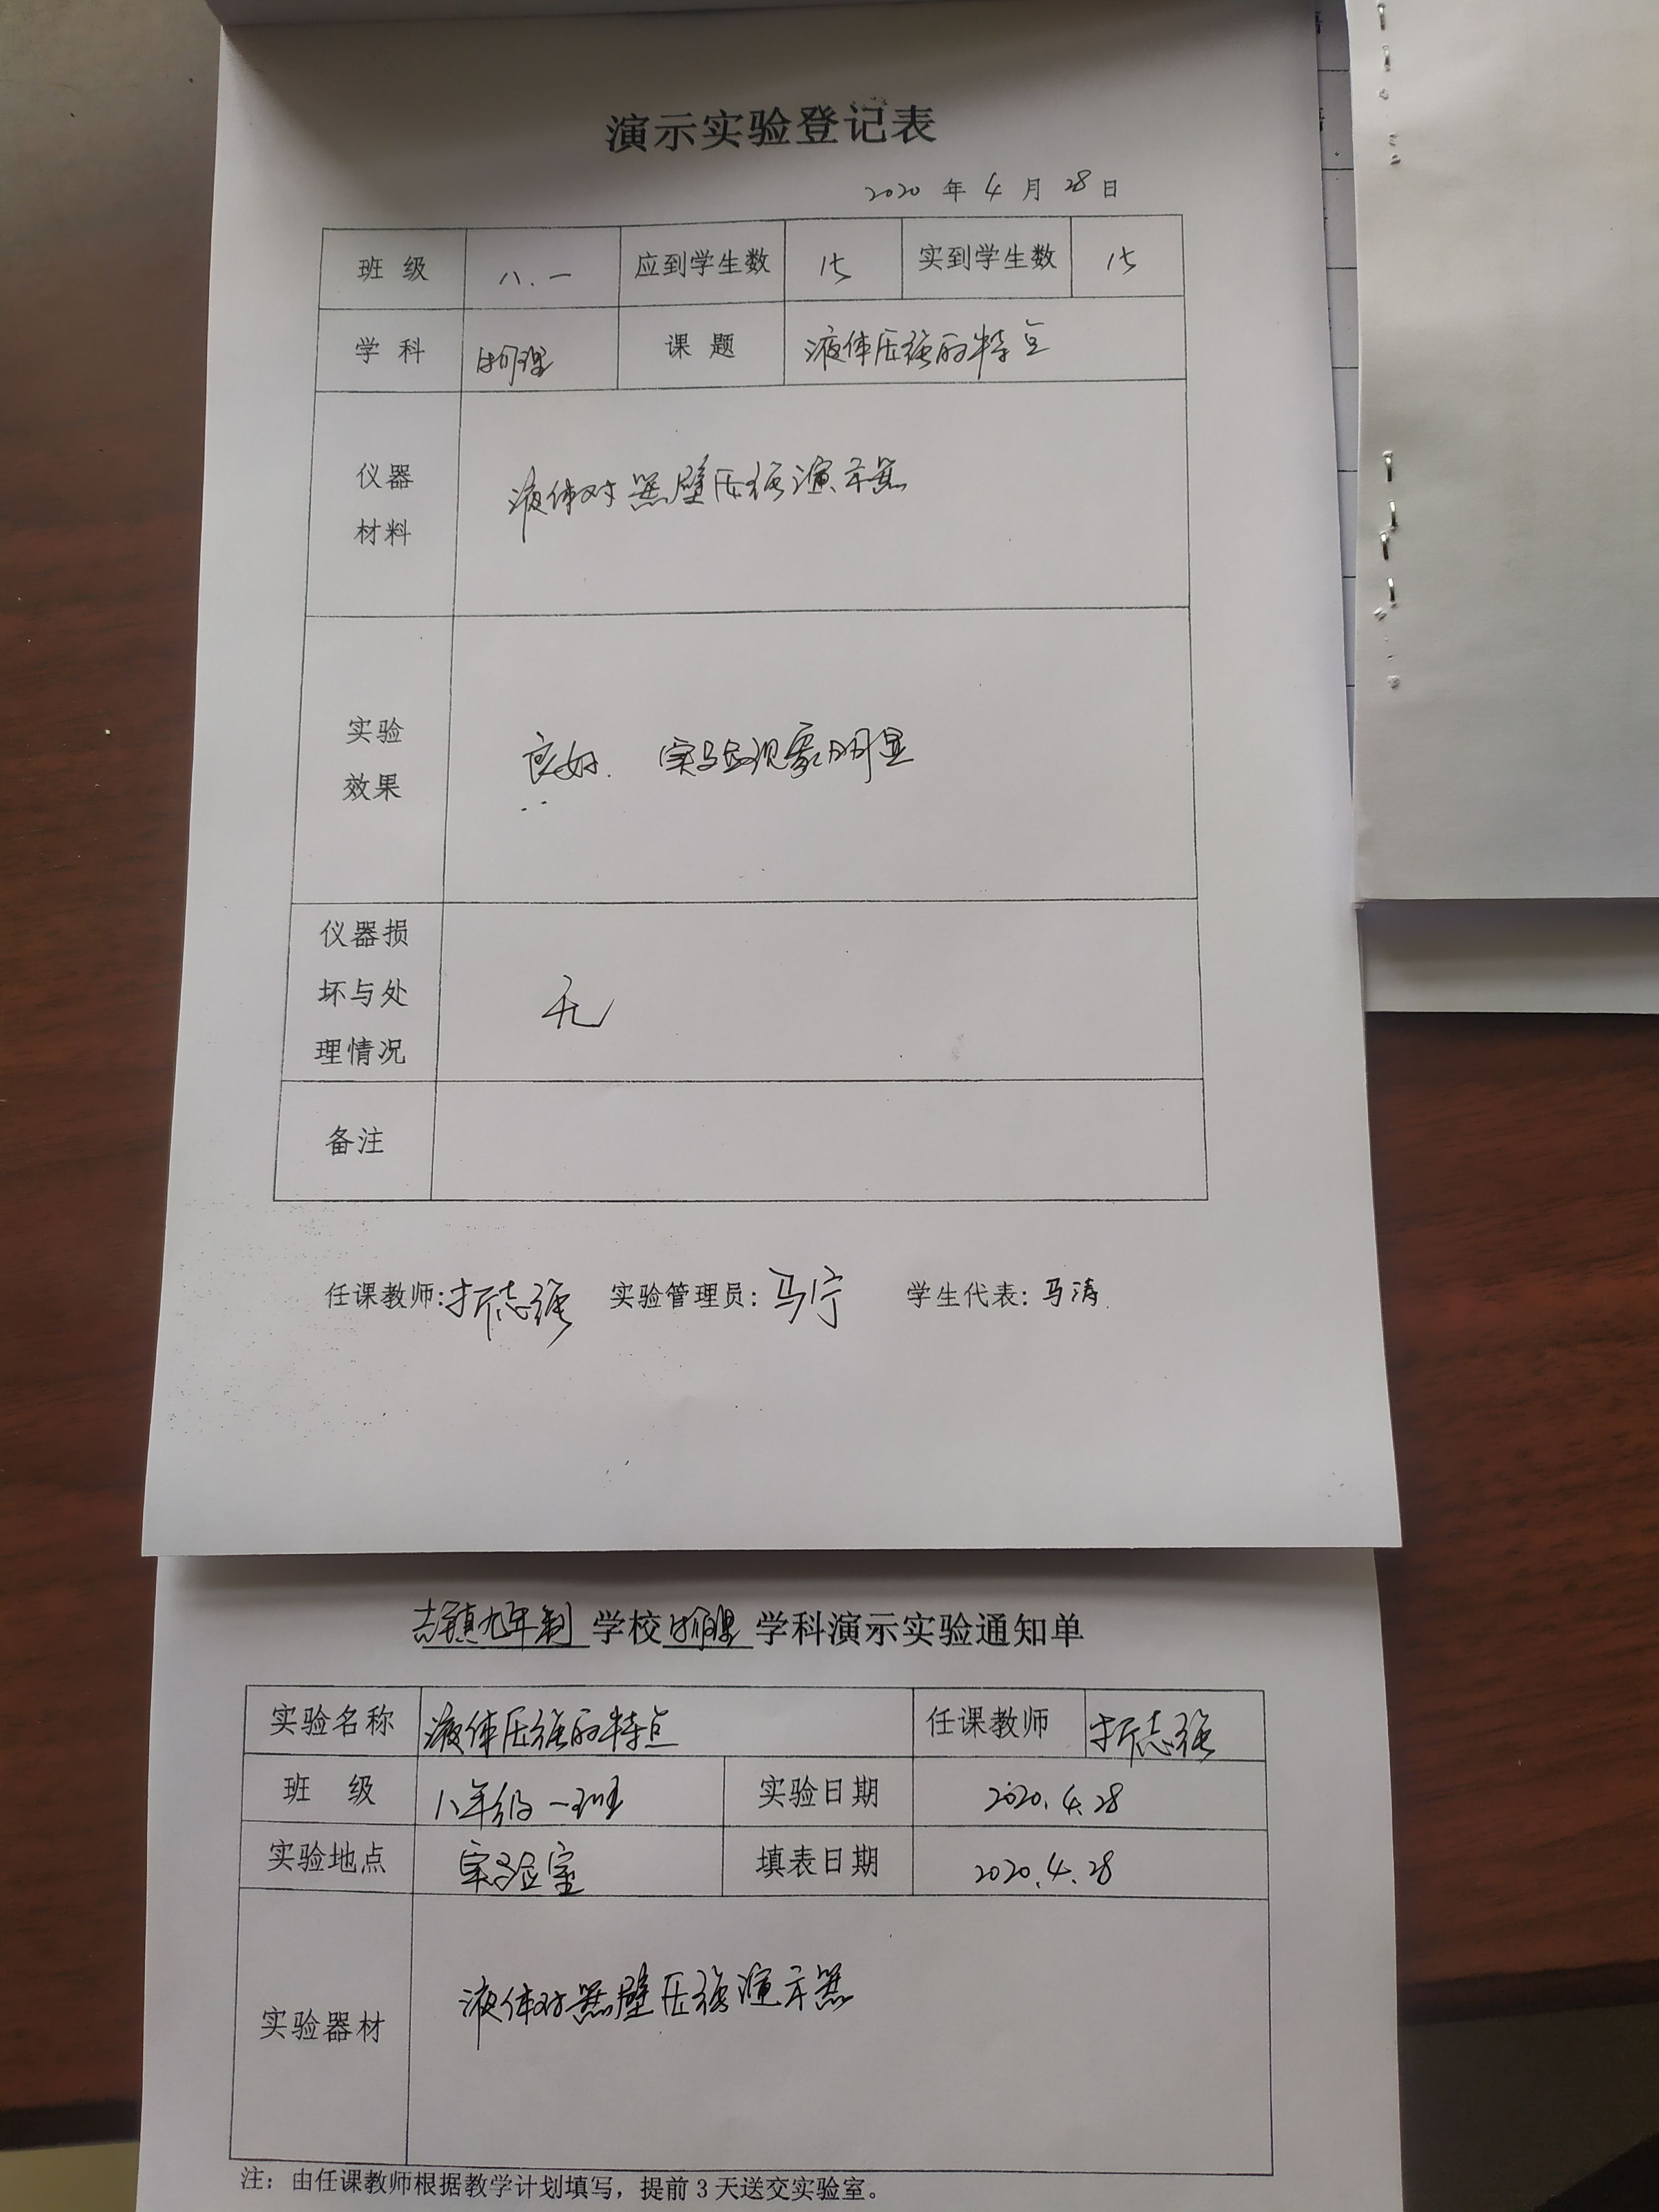 演示实验登记表
2020 年 4 月 28 日
班 级 八.一 应到学生数 15 实到学生数 15
学 科 物理 课 题 液体压强的特点
仪器
材料
液体对器壁压强演示器
实验
效果
良好. 实验现象明显
仪器损
坏与处
理情况
无
备注
任课教师:折志强 实验管理员:马宁 学生代表:马涛
吉镇九年制 学校 物理 学科演示实验通知单
实验名称 液体压强的特点 任课教师 折志强
班 级 八年级一班 实验日期 2020.4.28
实验地点 实验室 填表日期 2020.4.28
实验器材 液体对器壁压强演示器
注：由任课教师根据教学计划填写，提前3天送交实验室。